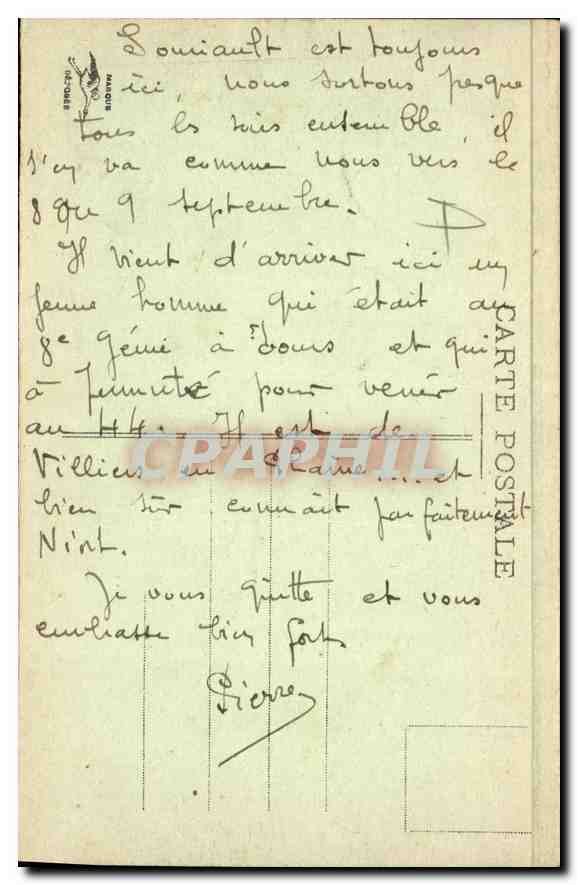 Souriault est toujours
ici, nous sortons presque
tous les soirs ensemble, il
s'en va comme nous vers le
8 ou 9 septembre.
Il vient d'arriver ici un
jeune homme qui était au
8e Génie à Tours et qui
à permuté pour venir
au 44. Il est de
Villiers en Plaine.... et
bien sûr connait parfaitement
Niort.
Je vous quitte et vous
embrasse bien fort.
Pierre
MARQUE
DÉPOSÉE
CARTE POSTALE
CPAPHIL